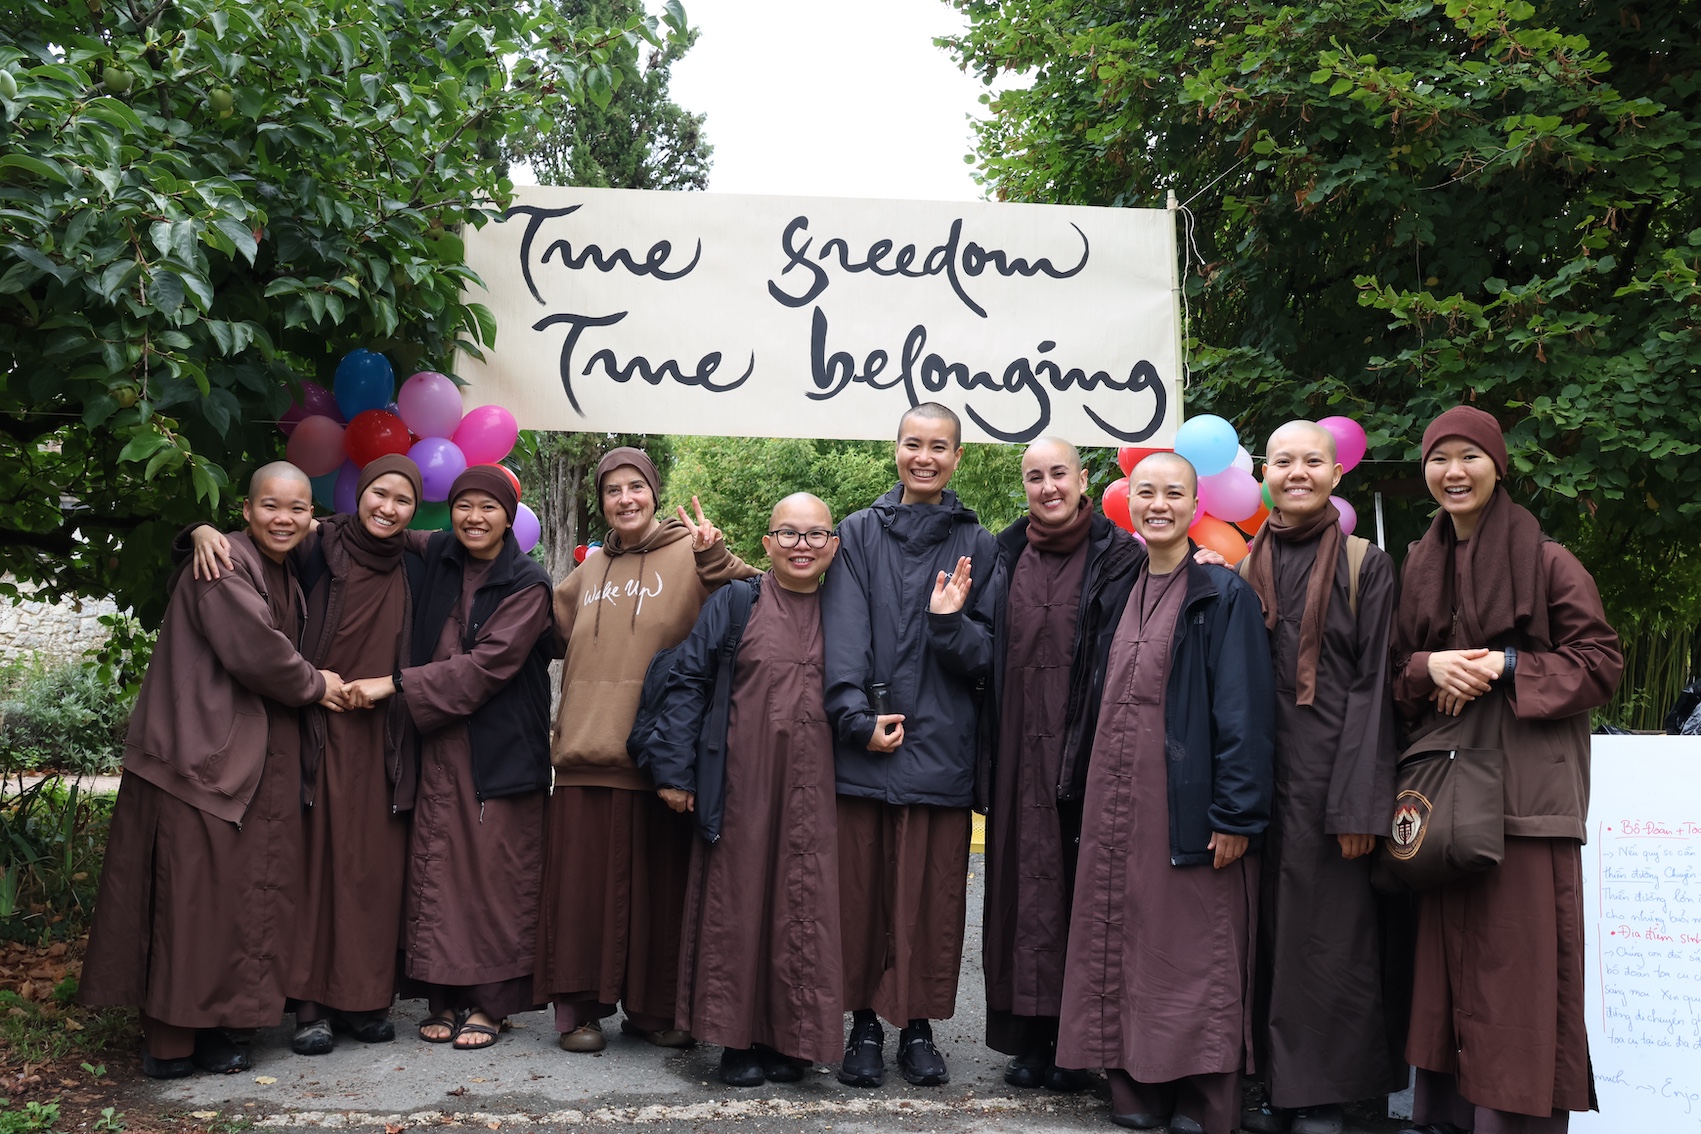 True freedom
True belonging
Wake Up
• Bồ Đoàn + Toạ
→ Nếu quý sc cần
thiền đường Chuyển
Thiền đường lớn
cho những buổi
• Địa điểm sinh
→ Chúng con đã
bồ đoàn toạ cụ
sáng mai. Xin quý
đừng di chuyển
toạ cụ tại các
much ~ Enjo